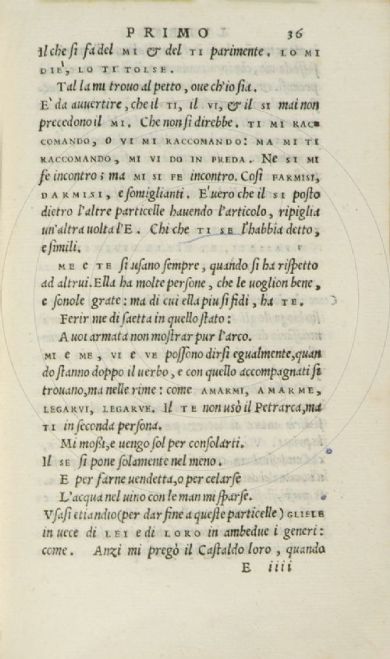 PRIMO 36
Il che si fa del MI & del TI parimente. LO MI
DIE', LO TI TOLSE.
Tal la mi trouo al petto, oue ch'io sia.
E' da auuertire, che il TI, il VI, & il SI mai non
precedono il MI. Che non si direbbe. TI MI RAC-
COMANDO, O VI MI RACCOMANDO: MA MI TI
RACCOMANDO, MI VI DO IN PREDA. Ne SI MI
fe incontro; ma MI SI FE incontro. Cosi FARMISI,
DARMISI, e somiglianti. E' uero che il SI posto
dietro l'altre particelle hauendo l'articolo, ripiglia
un'altra uolta l'E. Chi che TI SE l'habbia detto,
e simili.
ME e TE si usano sempre, quando si ha rispetto
ad altrui. Ella ha molte persone, che le uoglion bene,
e sonole grate: ma di cui ella piu si fidi, ha TE.
Ferir me di saetta in quello stato:
A uoi armata non mostrar pur l'arco.
MI e ME, VI e VE possono dirsi egualmente, quan
do stanno doppo il uerbo, e con quello accompagnati si
trouano, ma nelle rime: come AMARMI, AMARME,
LEGARVI, LEGARVE. Il TE non usò il Petrarca, ma
TI in seconda persona.
Mi mossi, e uengo sol per consolarti.
Il SE si pone solamente nel meno.
E per farne uendetta, o per celarse
L'acqua nel uino con le man mi sparse.
Vsasi etiandio (per dar fine a queste particelle) GLIELE
in uece di LEI e di LORO in ambedue i generi:
come. Anzi mi pregò il Castaldo loro, quando
E iiii